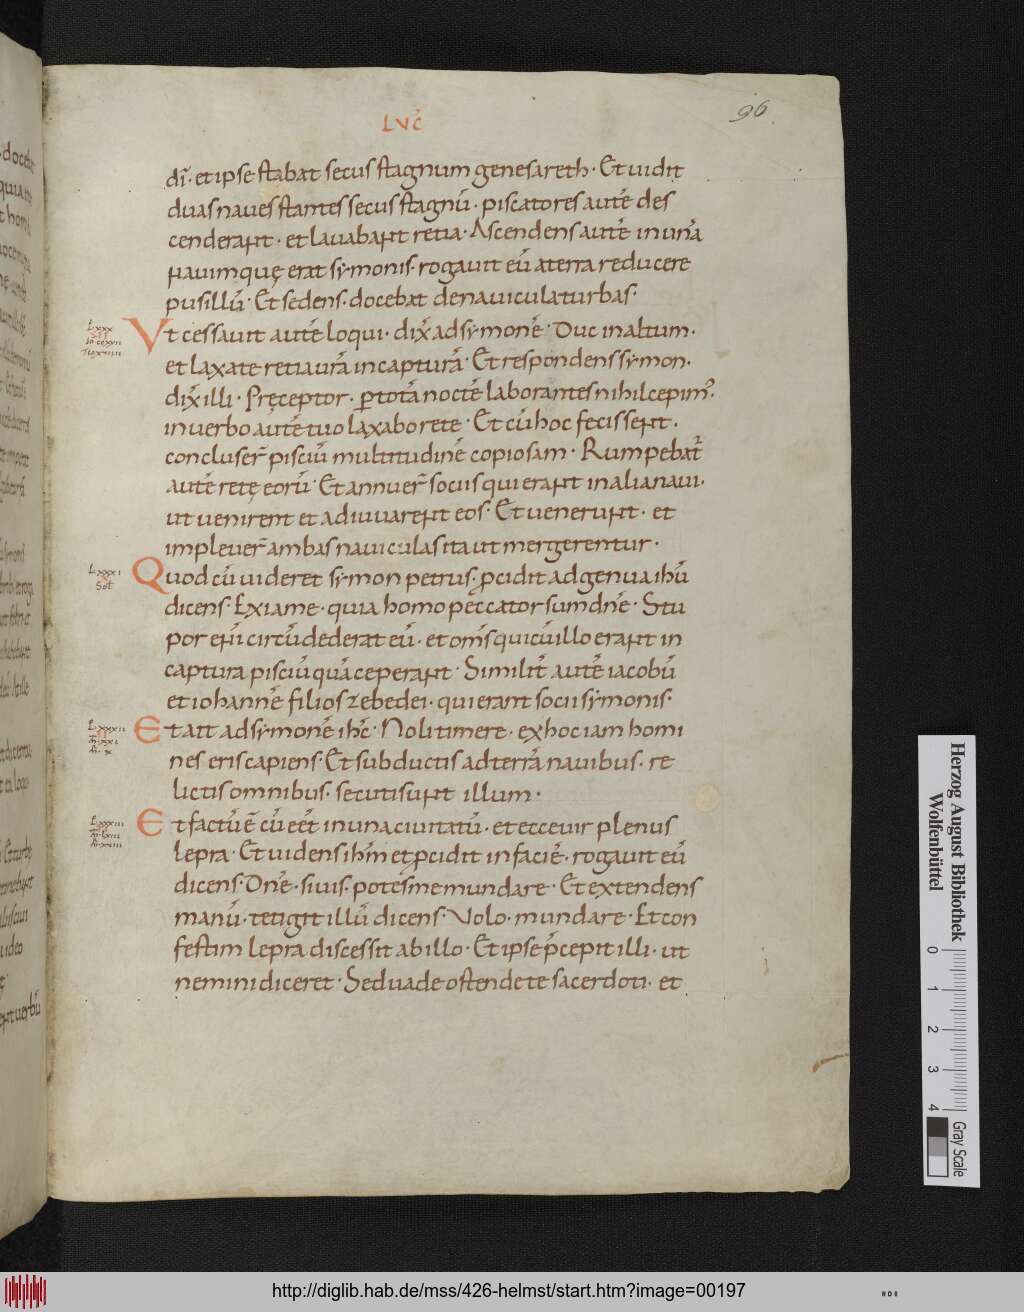 LVC̄
96
di̅. et ipse stabat secus stagnum genesareth. Et uidit
duas naues stantes secus stagnū. piscatores autē des
cenderant. et lauabant retia. Ascendens autē in unā
nauim quę erat symonis. rogauit eū a terra reducere
pusillū. Et sedens. docebat de nauicula turbas.
Vt cessauit autē loqui. dix̄ ad symonē. Duc in altum.
et laxate retia urā in capturā. Et respondens symon.
dix̄ illi. Pręceptor. ꝑ totā noctē laborantes nihil cepim᾽.
in uerbo autē tuo laxabo rete. Et cū hoc fecissent.
concluser̄ pisciū multitudinē copiosam. Rumpebat̄
autē retę eorū. Et annuer̄ sociis qui erant in alia naui.
ut uenirent et adiuuarent eos. Et uenerunt. et
impleuer̄ ambas nauiculas ita ut mergerentur.
Lxxxi
Quod cū uideret symon petrus. p̄cidit ad genua ihū
dicens. Exi a me. quia homo peccator sum dn̄e. Stu
por eni̅ circū dederat eū. et om̄s qui cū illo erant in
captura pisciū quā ceperant. Similit̄ autē iacobū
et iohannē filios zebedei. qui erant socii symonis.
Lxxxii
Et ait ad symonē ihc̄. Noli timere. ex hoc iam homi
nes eris capiens. Et subductis ad terrā nauibus. re
lictis omnibus. secuti sunt illum.
Lxxxiii
Et factū ē cū eēt in una ciuitatū. et ecce uir plenus
lepra. Et uidens ihm̄ et p̄cidit in faciē. rogauit eū
dicens. Dn̄e. si uis. potes me mundare. Et extendens
manū. tetigit illū dicens. Volo. mundare. Et con
festim lepra discessit ab illo. Et ipse p̄cepit illi. ut
nemini diceret. Sed uade ostende te sacerdoti. et
Herzog August Bibliothek
Wolfenbüttel
0 1 2 3 4
Gray Scale
http://diglib.hab.de/mss/426-helmst/start.htm?image=00197